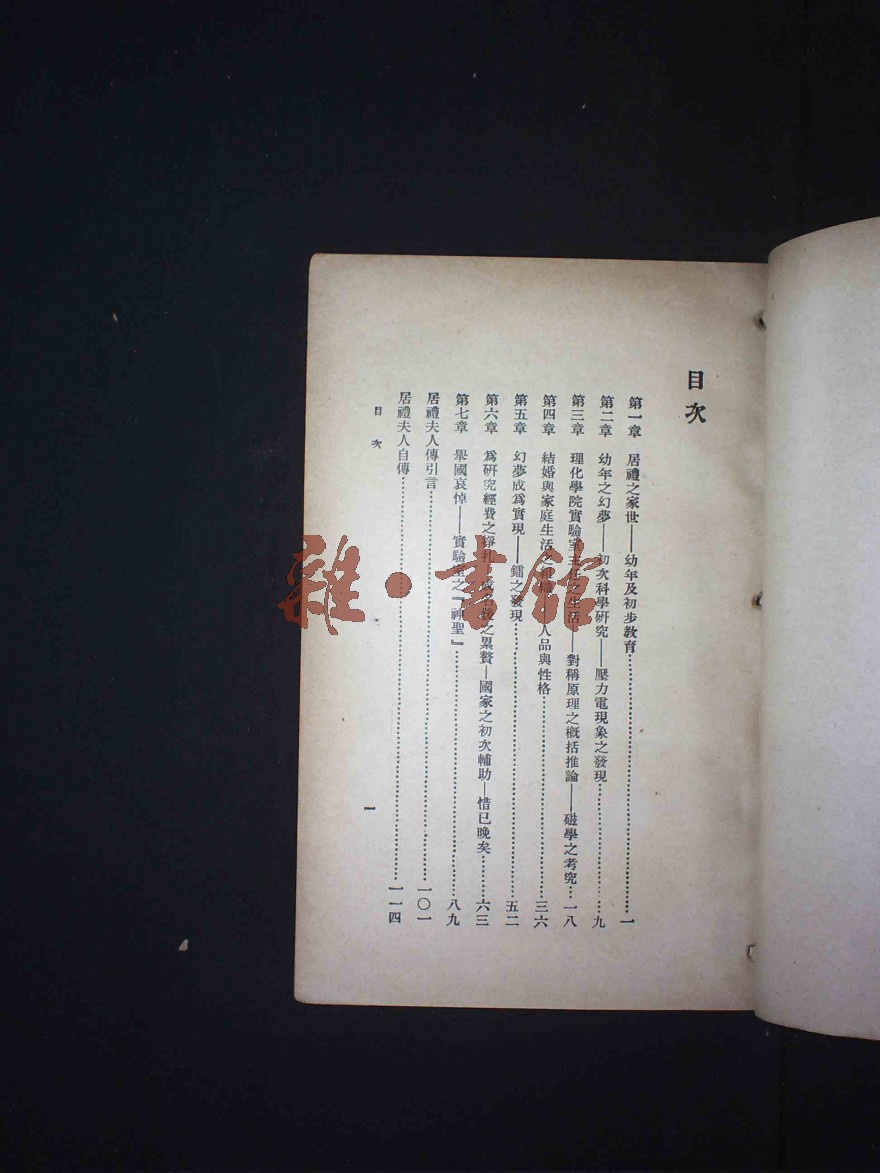 目次
第一章 居禮之家世——幼年及初步教育……一
第二章 幼年之幻夢——初次科學研究——壓力電現象之發現……九
第三章 理化學院實驗室主任之生活——對稱原理之概括推論——磁學之考究……一八
第四章 結婚與家庭生活之 人品與性格……三六
第五章 幻夢成爲實現——鐳之發現……五二
第六章 爲研究經費之掙扎 之累贅—國家之初次輔助—惜已晚矣……六三
第七章 舉國哀悼——實驗室之『神聖』……八九
居禮夫人傳引言……一〇一
居禮夫人自傳……一一四
目次
一
雜·書館